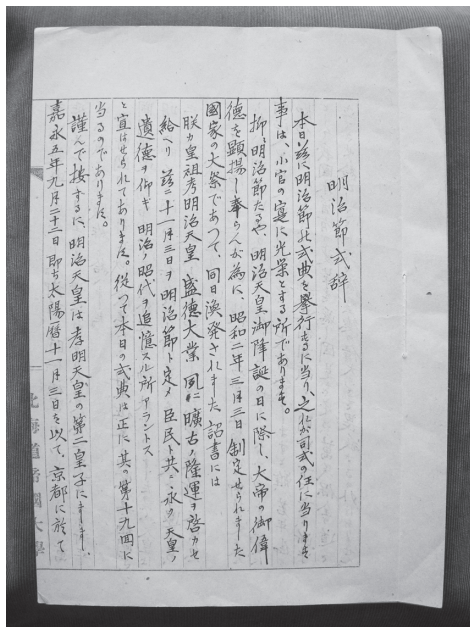 明治節式辞
本日茲に明治節の式典を擧行するに当り、之れが司式の任に当ります
事は、小官の寔に光栄とする所であります。
抑々明治節たるや、明治天皇御降誕の日に際し、大帝の御偉
徳を顕揚し奉らんが為に、昭和二年三月三日制定せられました
國家の大祭であつて、同日渙発されました詔書には
朕カ皇祖考明治天皇盛徳大業夙ニ曠古ノ隆運ヲ啓カセ
給ヘリ茲ニ十一月三日ヲ明治節ト定メ臣民ト共ニ永ク天皇ノ
遺徳ヲ仰ギ明治ノ昭代ヲ追憶スル所アラントス
と宣はせられてあります。従つて本日の式典は正に其の第十九回に
当るのであります。
謹んで按ずるに、明治天皇は孝明天皇の第二皇子にまします。
嘉永五年九月二十二日即ち太陽暦十一月三日を以て、京都に於て
北海道帝國大學